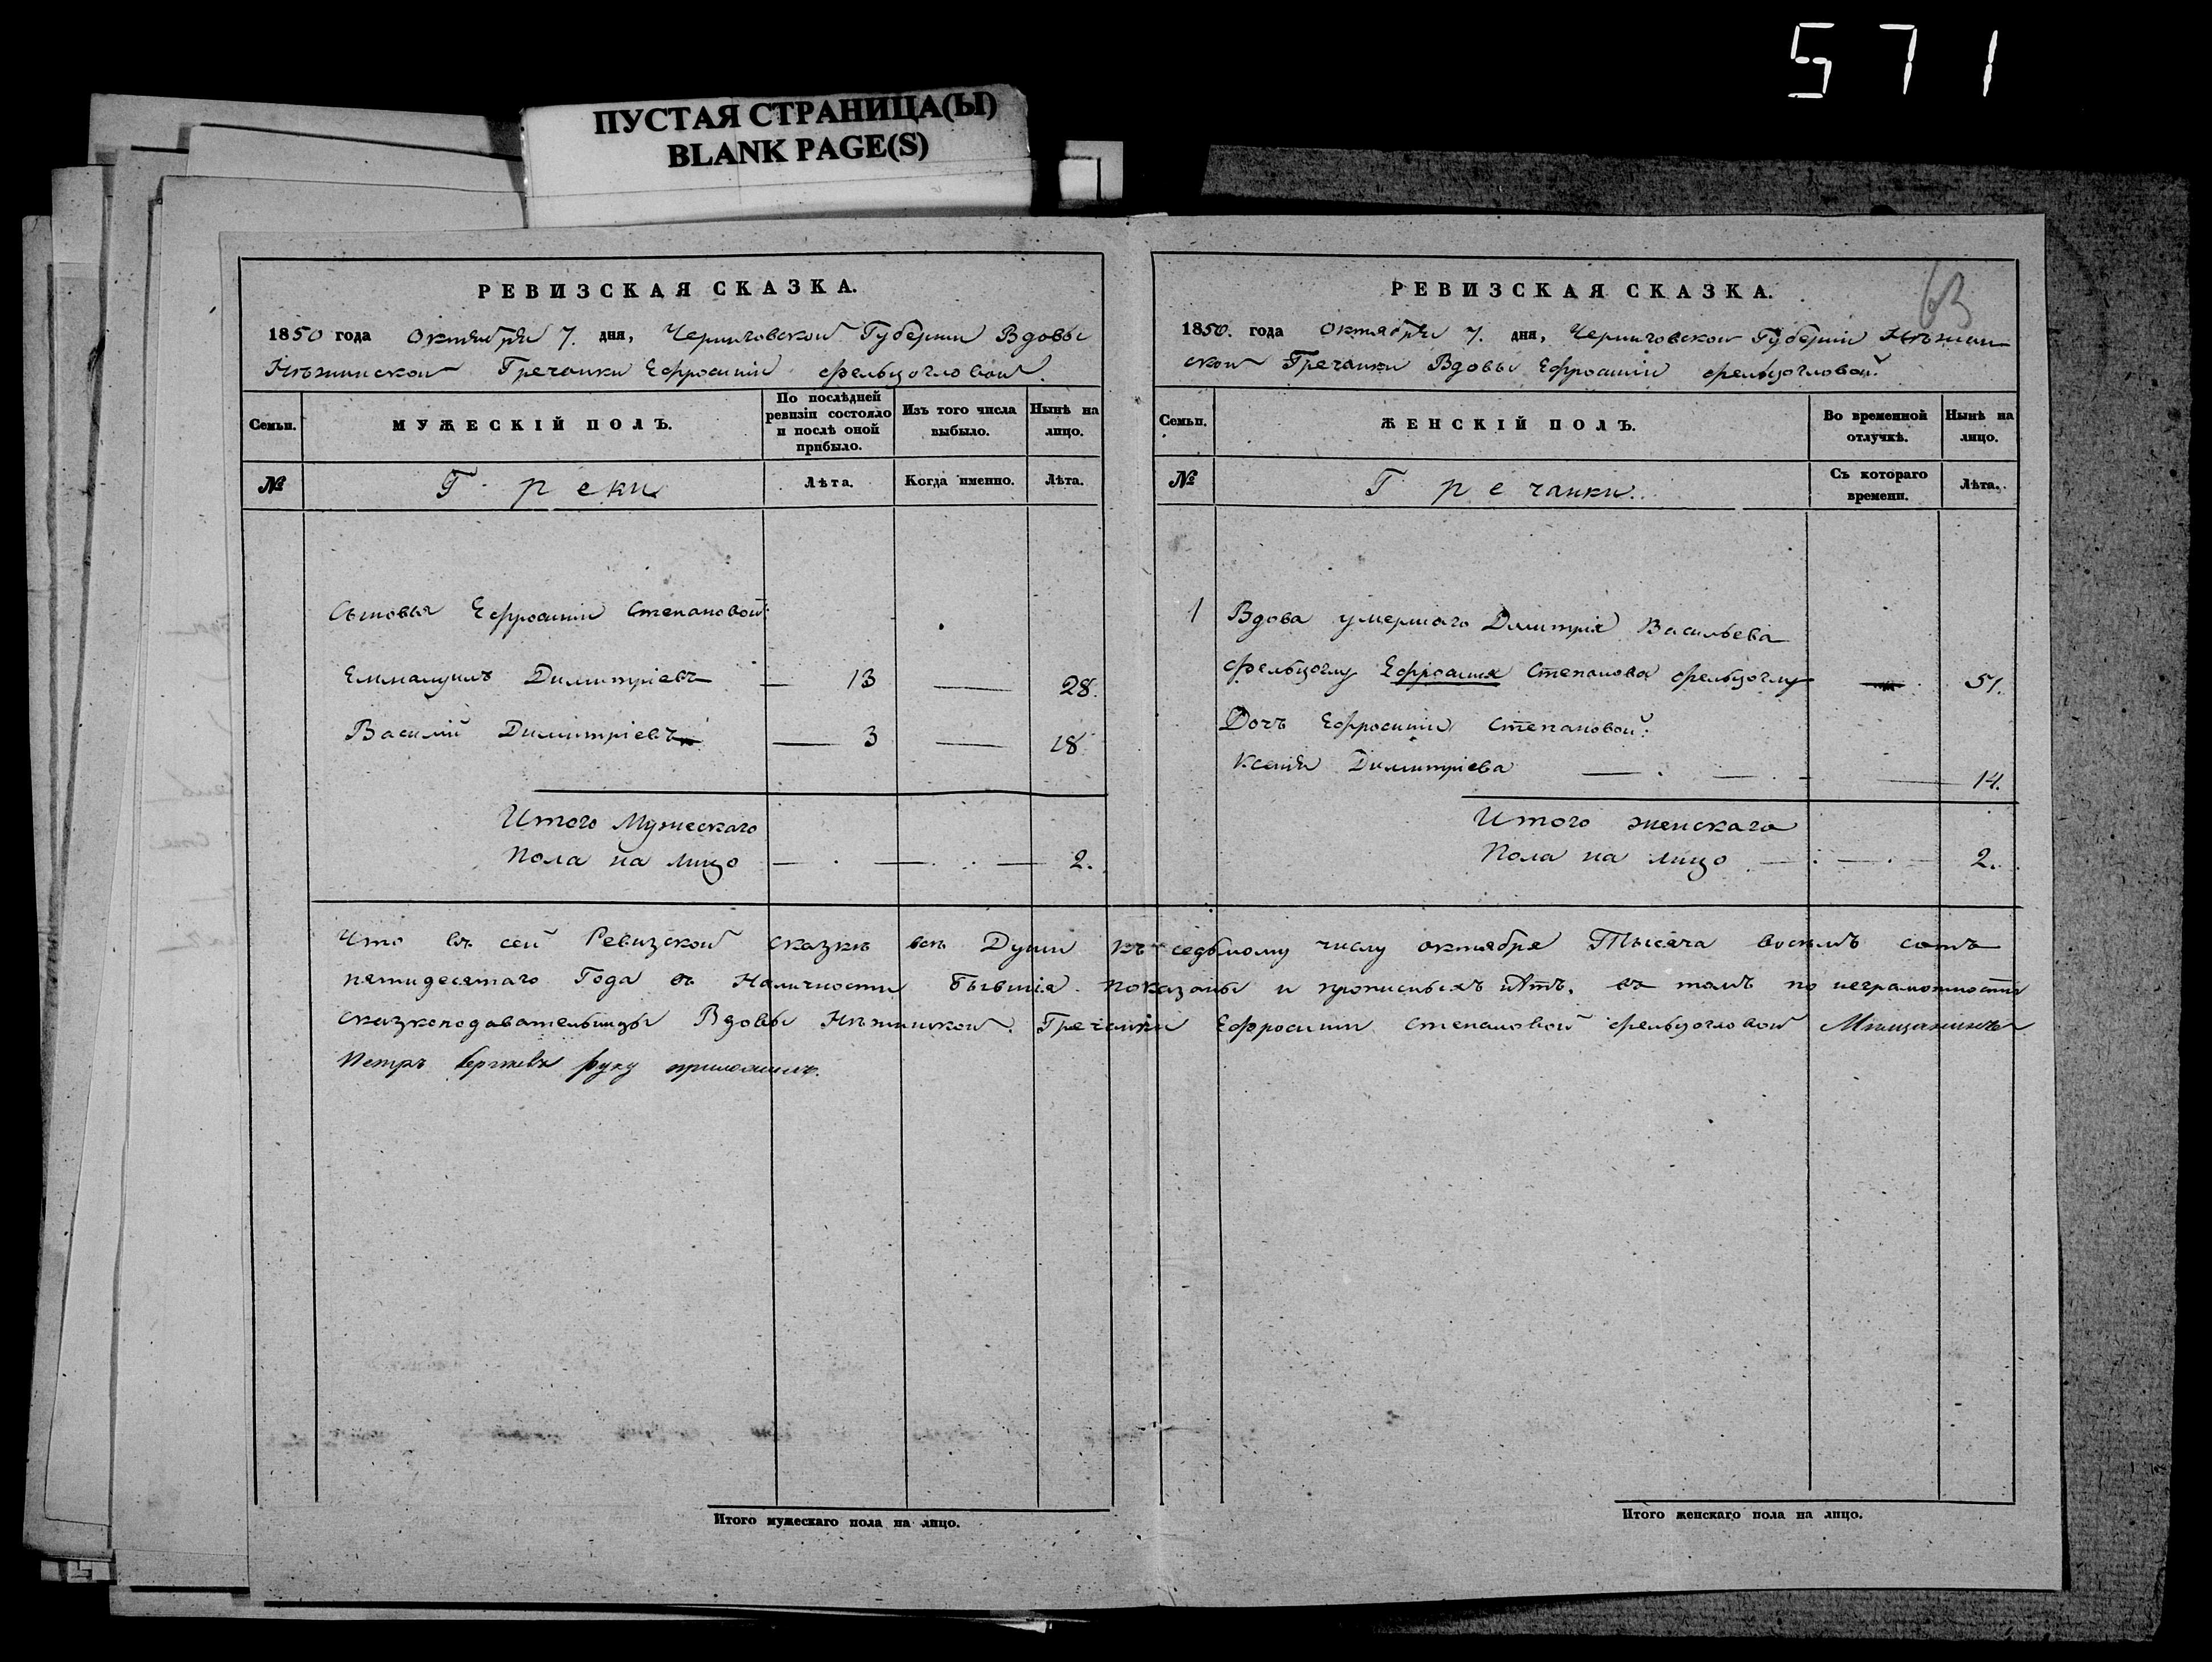 571
ПУСТАЯ СТРАНИЦА(Ы)
BLANK PAGE(S)
РЕВИЗСКАЯ СКАЗКА.
1850 года Октября 7. дня, Черниговской Губернии Вдовы
Нѣжинской Гречанки Ефросиніи Фельцогловой.
Семьи.
МУЖЕСКІЙ ПОЛЪ.
По послѣдней ревизіи состояло и послѣ оной прибыло.
Изъ того числа выбыло.
Нынѣ на лицо.
№
Греки
Лѣта.
Когда именно.
Лѣта.
Сыновья Ефросиніи Степановой:
Еммануилъ Димитріевъ — 13 — 28.
Василій Димитріевъ — 3 — 18
Итого Мужескаго
Пола на лицо — . — . . — 2.
Итого мужескаго пола на лицо.
63
РЕВИЗСКАЯ СКАЗКА.
1850. года Октября 7. дня, Черниговской Губерніи Нѣжин
ской Гречанки Вдовы Ефросиніи Фельцогловой.
Семьи.
ЖЕНСКІЙ ПОЛЪ.
Во временной отлучкѣ.
Нынѣ на лицо.
№
Гречанки.
Съ котораго времени.
Лѣта.
1 Вдова умершаго Димитрія Васильева
Фельцоглу Ефросинія Степанова Фельцоглу — 51.
Дочь Ефросиніи Степановой:
Ксенія Димитріева — . — . — 14.
Итого женскаго
Пола на лицо — . — . — 2.
Что въ сей Ревизской сказкѣ всѣ Души къ седьмому числу октября Тысяча восемь сотъ
пятидесятаго Года въ Наличности бывшія показаны и прописныхъ нѣтъ, въ томъ по неграмотности
сказкоподавательницы Вдовы Нѣжинской Гречанки Ефросиніи Степановой Фельцогловой Мищанинъ
Петръ руку приложилъ.
Итого женскаго пола на лицо.